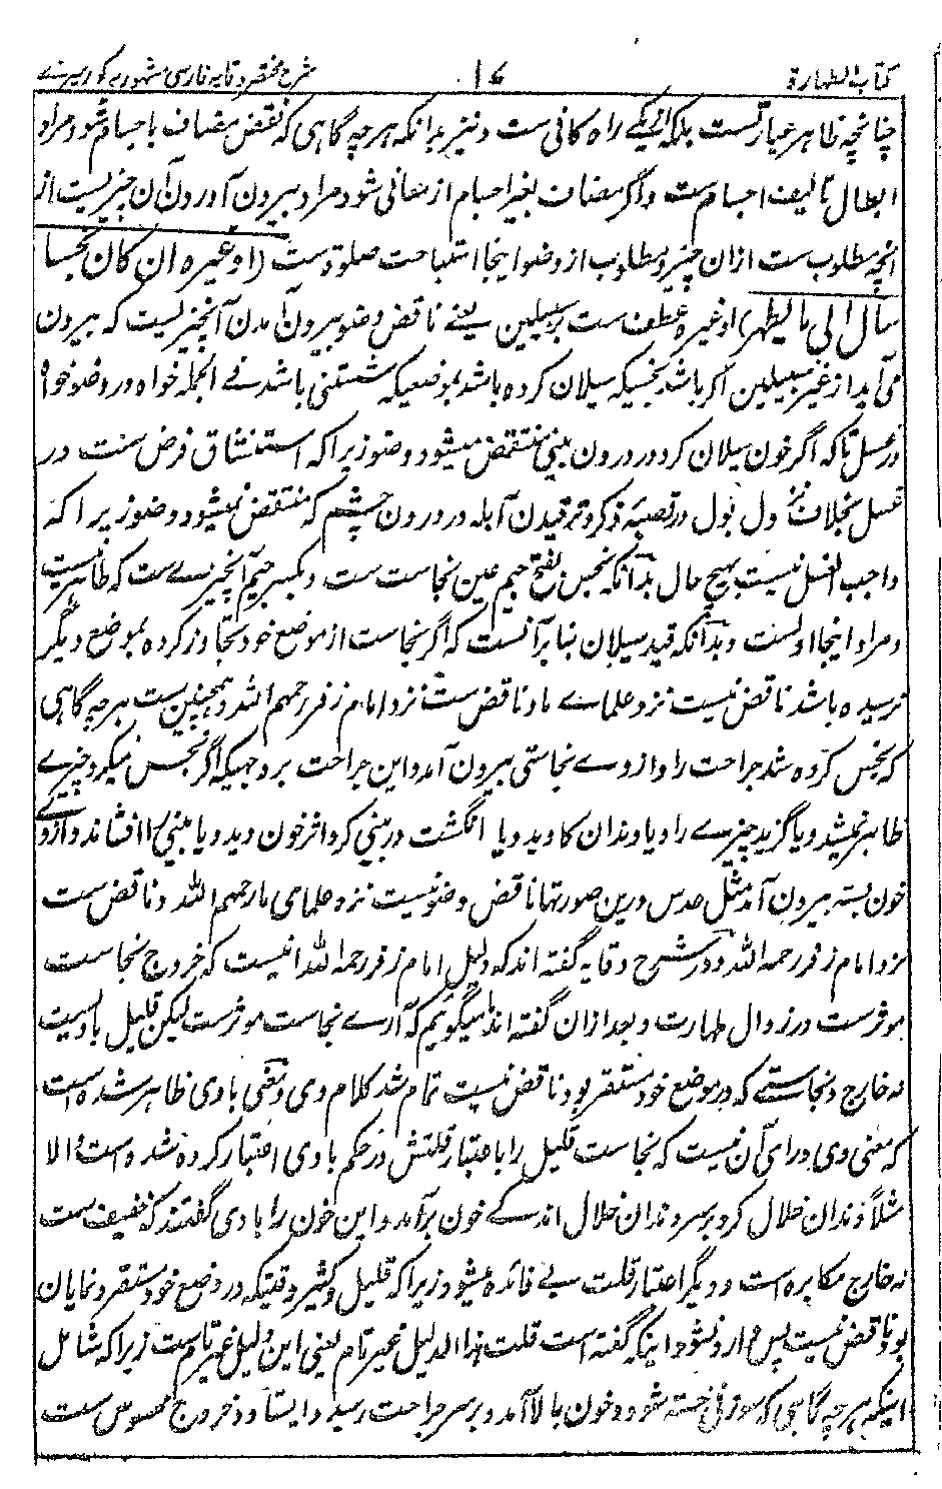 کتاب الطهارة ۱۷ شرح مختصر وقایه فارسی مشهور به کور میری
چنانچه ظاهر عبارتست بلکه از یکے راه کافی ست و نیز بدانکه هرچه گاهی که نقض مضاف باجسام شود مراد
ابطال تالیف اجسام ست و اگر مضاف بغیر اجسام از معانی شود مراد بیرون آوردن آن چیزیست از
انچه مطلوب ست ازان چیز و مطلوب از وضو اینجا استباحت صلوة ست (او غیره ان کان نجسا
سال الی ما یطهر) او غیره عطف ست بر سبیلین یعنے ناقض وضو بیرون آمدن آنچیزیست که بیرون
می آید از غیر سبیلین اگر باشد نجسیکه سیلان کرده باشد بموضعیکه شستنی باشد فے الجمله خواه در وضو خواه
در غسل تا که اگر خون سیلان کرد در درون بینی منتقض میشود وضو زیرا که استنشاق فرض ست در
غسل بخلاف نزول بول در قصبه ذکر و ترقیدن آبله در درون چشم که منتقض نمیشود وضو زیرا که
واجب الغسل نیست بهیچ حال بدانکه نجس بفتح جیم عین نجاست ست و بکسر جیم آنچیزے ست که طاهر نیست
و مراد اینجا اولست و بدانکه قید سیلان بنا بر آنست که اگر نجاست از موضع خود تجاوز کرده بموضع دیگر
نرسیده باشد ناقض نیست نزد علماے ما و ناقض ست نزد امام زفر رحمهم الله و همچنین ست هرچه گاهی
که نجس کرده شد جراحت را و از وے نجاستی بیرون آمد و این جراحت بر وجهیکه اگر نجس نمیکرد چیزے
ظاهر نمیشد و یا گزید چیزے را و یا دندان کاوید و یا انگشت در بینی کرد اثر خون دید و یا بینی را افشاند و از وے
خون بسته بیرون آمد مثل عدس درین صورتها ناقض وضو نیست نزد علمای ما رحمهم الله و ناقض ست
نزد امام زفر رحمه الله و در شرح وقایه گفته اند که دلیل امام زفر رحمه الله اینست که خروج نجاست
موثرست در زوال طهارت و بعد ازان گفته اند ما میگویم که آرے نجاست موثرست لیکن قلیل بادیست
نه خارج و نجاستے که در موضع خود مستقر بود ناقض نیست تمام شد کلام وی و مخفی بادی ظاهر شده است
که معنی وی ورای آن نیست که نجاست قلیل را باعتبار قلتش در حکم بادی اعتبار کرده شده است و الا
مثلاً دندان خلال کرد بر سر دندان خلال اندکے خون برآمد و این خون را بادی گفتند که خفیف ست
نه خارج مکابره است و دیگر اعتبار قلت بے فائده میشود زیرا که قلیل و کثیر وقتیکه در وضع خود مستقر و نمایان
بود ناقض نیست پس وارد نشود اینکه گفته است قلت هذا الدلیل غیر تام یعنی این دلیل غیر تام ست زیرا که شامل
اینکه هرچه گاهی که سوزنی خسته شود و خون بالا آمد و بر سر جراحت رسید و ایستاد و خروج محسوس ست